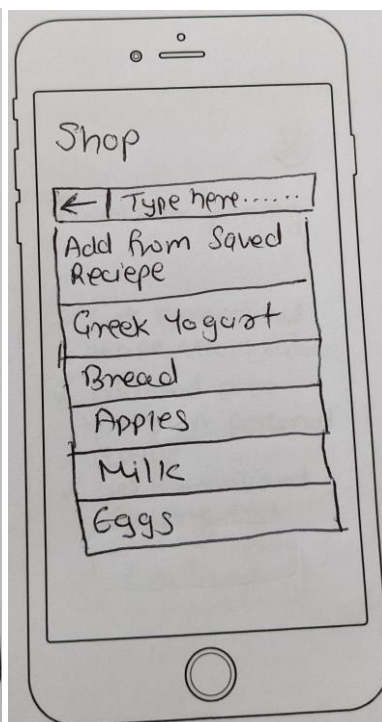 Shop
← Type here......
Add from Saved
Reciepe
Greek Yogurt
Bread
Apples
Milk
Eggs